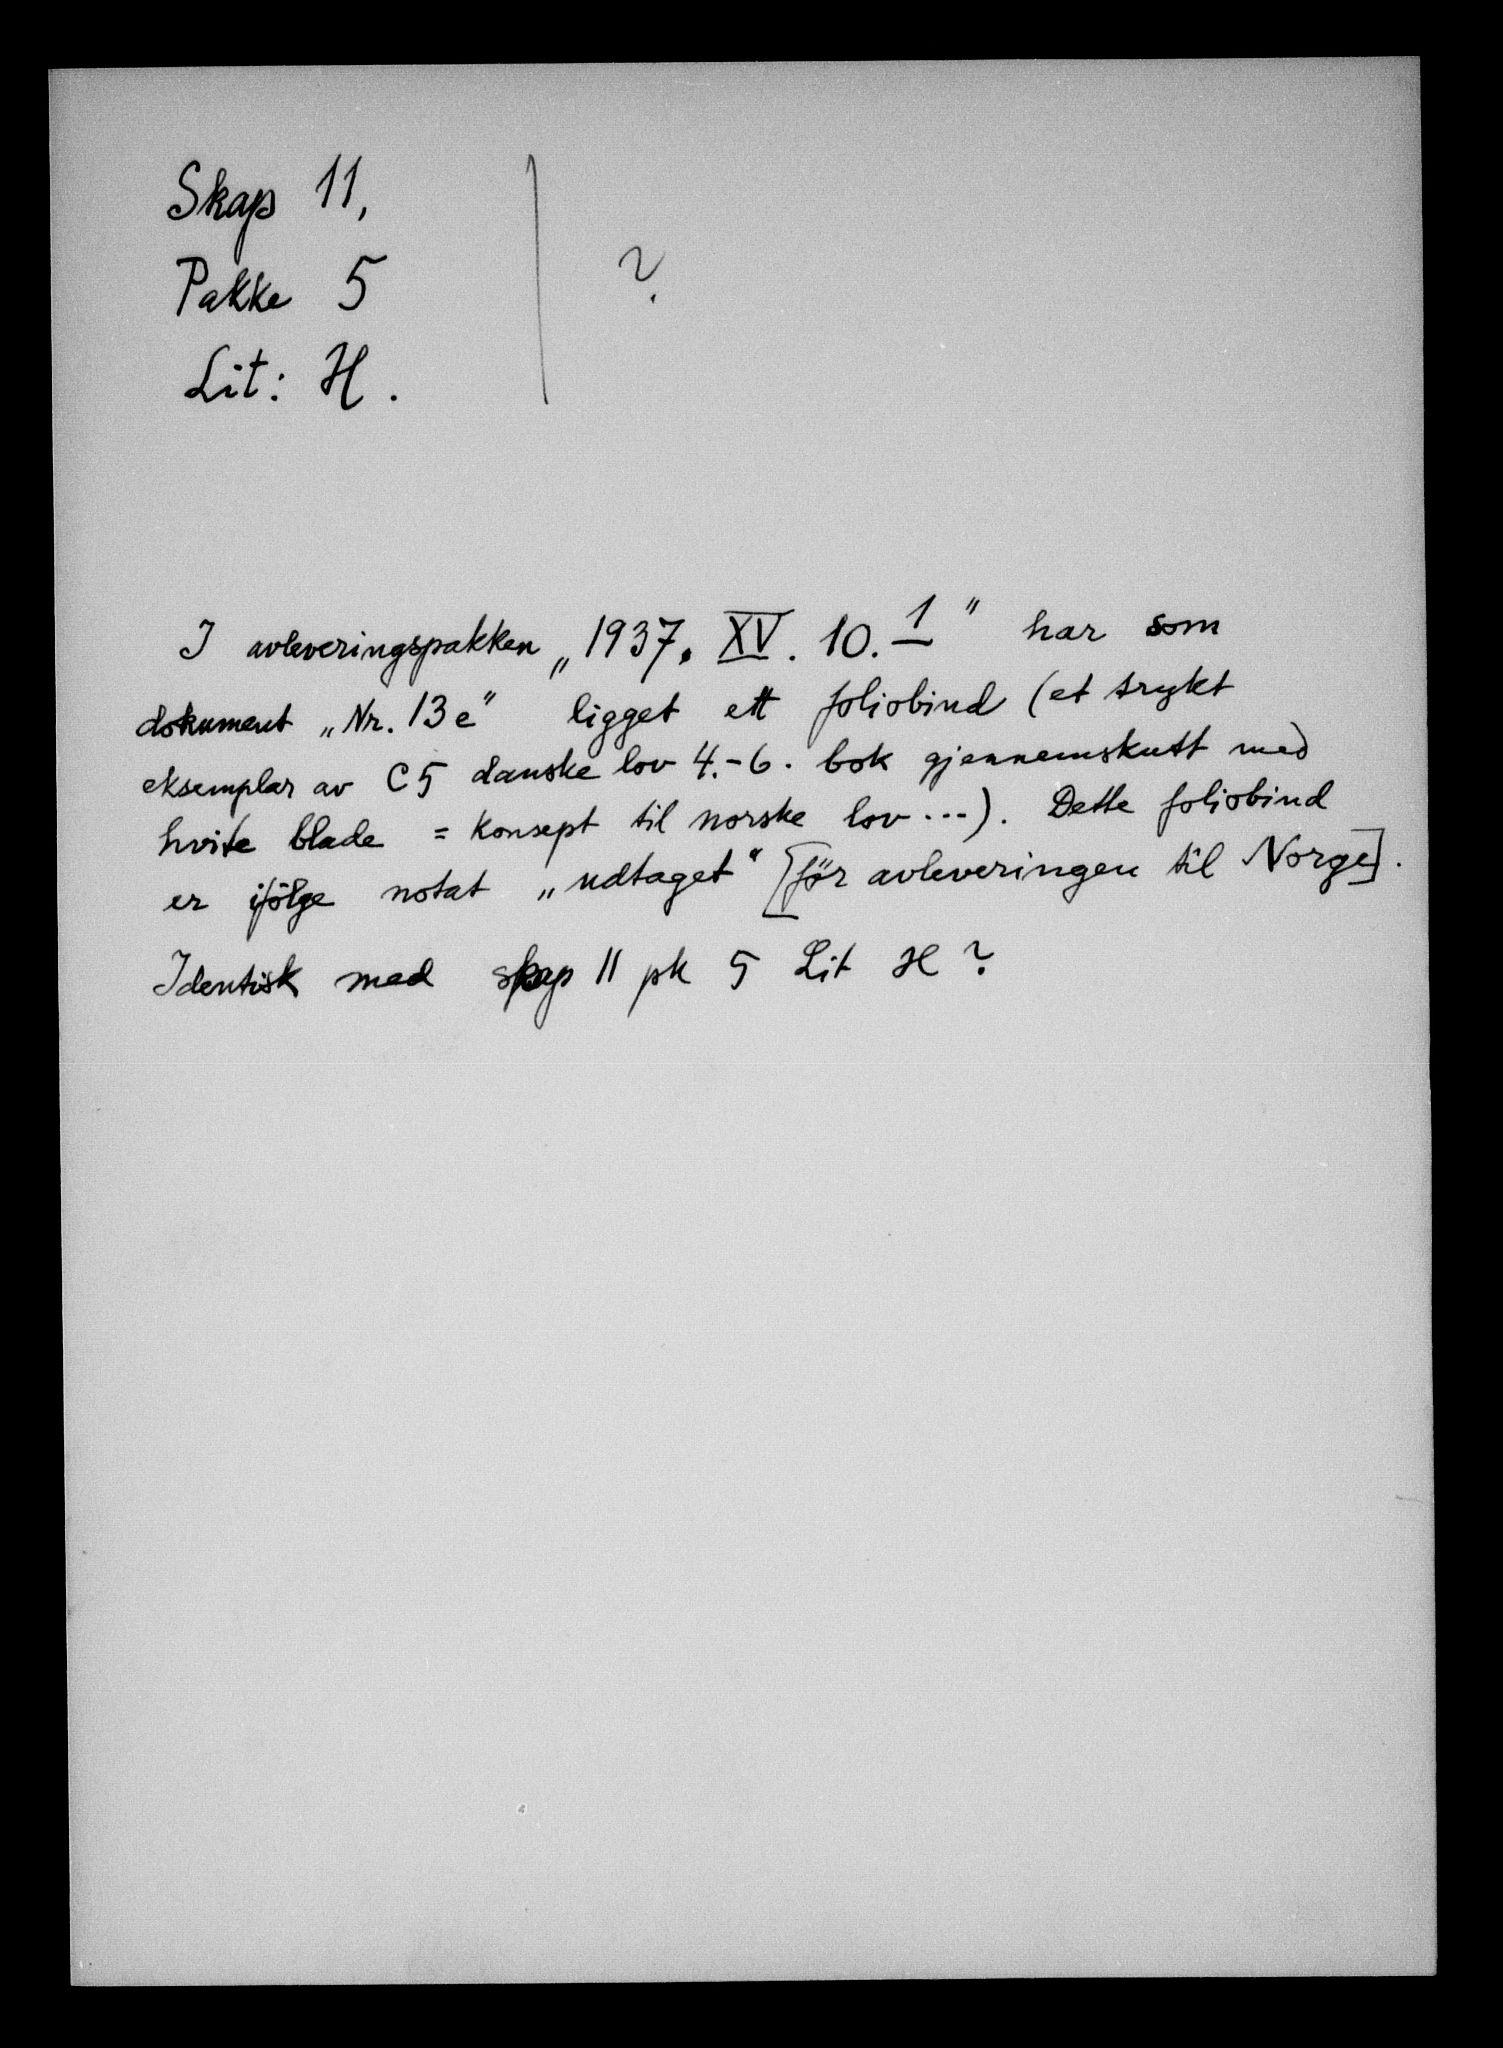 Skap 11,
Pakke 5
Lit: H.
?
I avleveringspakken „1937. XV. 10. 1" har som
dokument „Nr. 13 e" ligget ett foliobind (et trykt
eksemplar av C5 danske lov 4.-6. bok gjennemskutt med
hvite blade = konsept til norske lov ...). Dette foliobind
er ifölge notat „udtaget" [för avleveringen til Norge].
Identisk med skap 11 pk 5 Lit H ?